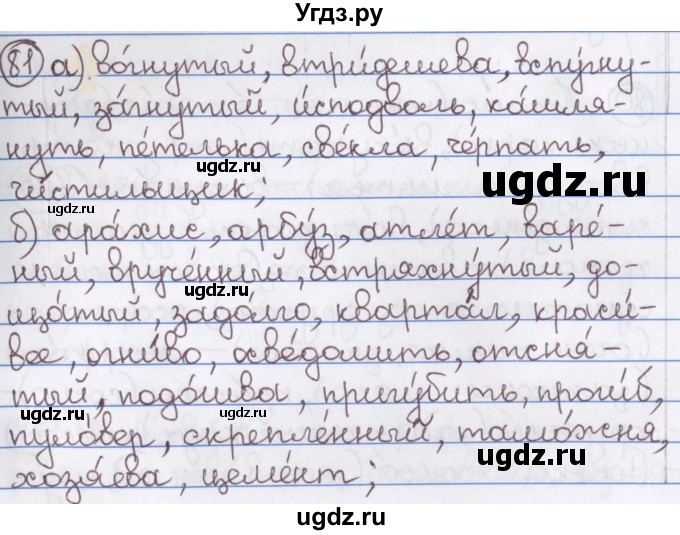 Угдз.ру
81 а) во́гнутый, втри́дешева, вспу́гну-
тый, за́гнутый, и́сподволь, ка́шля-
нуть, пе́телька, све́кла, че́рпать,
чи́стильщик;
б) ара́хис, арбу́з, атле́т, варе́-
ный, вруче́нный, встряхну́тый, до-
ща́тый, задо́лго, кварта́л, краси́-
вее, огни́во, осве́домить, отсня́-
тый, подо́шва, пригу́бить, проги́б,
пуло́вер, скрепле́нный, тамо́жня,
хозя́ева, цеме́нт;
ugdz.ru
ugdz.ru
ugdz.ru
ugdz.ru
ugdz.ru
ugdz.ru
ugdz.ru
ugdz.ru
ugdz.ru
ugdz.ru